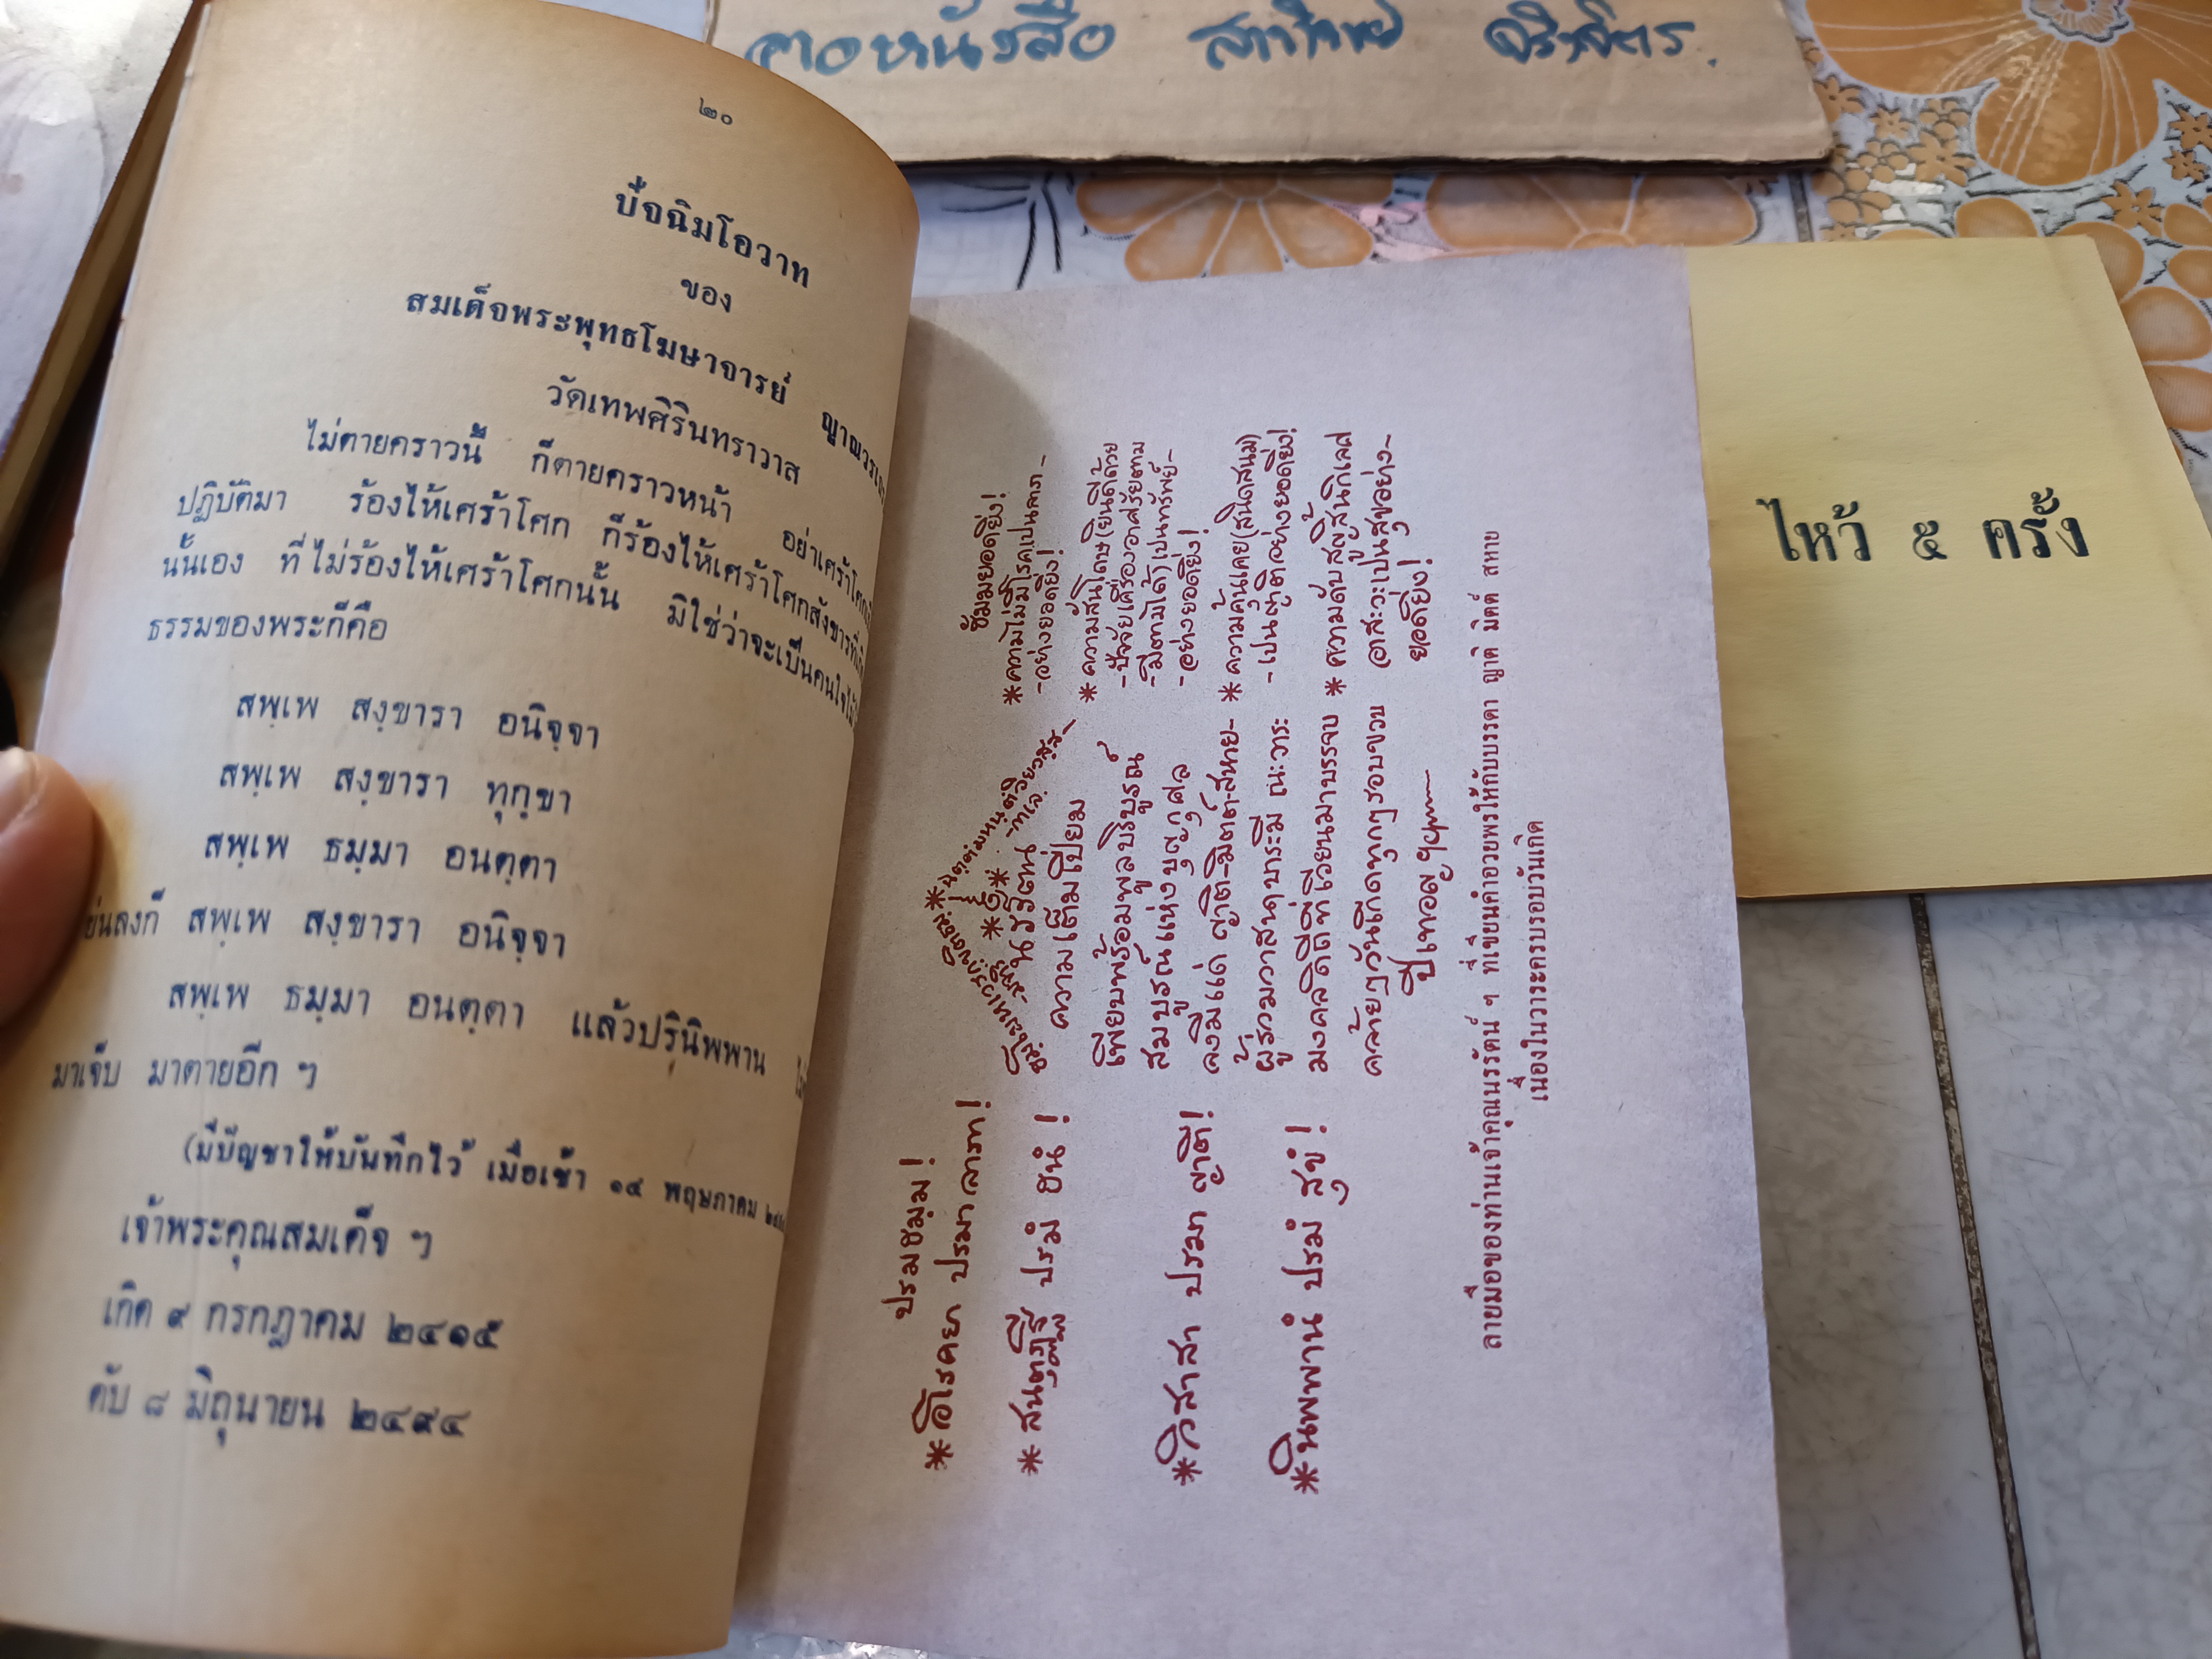 ๒๐
ปัจฉิมโอวาท
ของ
สมเด็จพระพุทธโฆษาจารย์
วัดเทพศิรินทราวาส
ไม่ตายคราวนี้ ก็ตายคราวหน้า อย่าเศร้าโศก
ปฏิบัติมา ร้องไห้เศร้าโศก ก็ร้องไห้เศร้าโศกสังขารที่
นั้นเอง ที่ไม่ร้องไห้เศร้าโศกนั้น มิใช่ว่าจะเป็นคนใจไม้
ธรรมของพระก็คือ
สพฺเพ สงฺขารา อนิจฺจา
สพฺเพ สงฺขารา ทุกฺขา
สพฺเพ ธมฺมา อนตฺตา
ย่นลงก็ สพฺเพ สงฺขารา อนิจฺจา
สพฺเพ ธมฺมา อนตฺตา แล้วปรินิพพาน
มาเจ็บ มาตายอีก ฯ
(มีบัญชาให้บันทึกไว้ เมื่อเช้า ๑๔ พฤษภาคม
เจ้าพระคุณสมเด็จ ฯ
เกิด ๙ กรกฎาคม ๒๔๑๕
ดับ ๘ มิถุนายน ๒๔๙๔
ปรมธมฺม!
*อโรคยา ปรมาลาภา!
*สนตุฏฺฐี ปรมํ ธนํ!
*วิสาสา ปรมา ญาติ!
*นิพพานํ ปรมํ สุขํ!
ความเต็มเปี่ยม
เพียบพร้อมพูลบริบูรณ์
สมบูรณ์แห่งบุญกุศล
จงมีแด่ ญาติ-มิตต์-สหาย-
ผู้ร่วมวาสนาบารมี ณะวาระ
มงคลดิถีที่เวียนมาบรรจบ
คล้ายๆวันเกิดทุกๆรอบขวบ
ปีเทอญ ฯ
ธัมมยอดยิ่ง!
*ความไม่มีโรคเปนลาภ-
-อย่างยอดยิ่ง!
*ความสันโดษ(ยินดีด้วย
-ปัจจัยเครื่องอาศรัยตาม
-มีตามได้)เปนทรัพย์-
-อย่างยอดยิ่ง!
*ความคุ้นเคย(สนิดสนม)
-เปนญาติอย่างยอดยิ่ง!
*ความดับสูญสิ้นกิเลส
อาสะวะเปนสุขอย่าง-
ยอดยิ่ง!
ลายมือของท่านเจ้าคุณนรรัตน์ ฯ ที่เขียนคำอวยพรให้กับบรรดา ญาติ มิตต์ สหาย
เนื่องในวาระครบรอบวันเกิด
ไหว้ ๕ ครั้ง